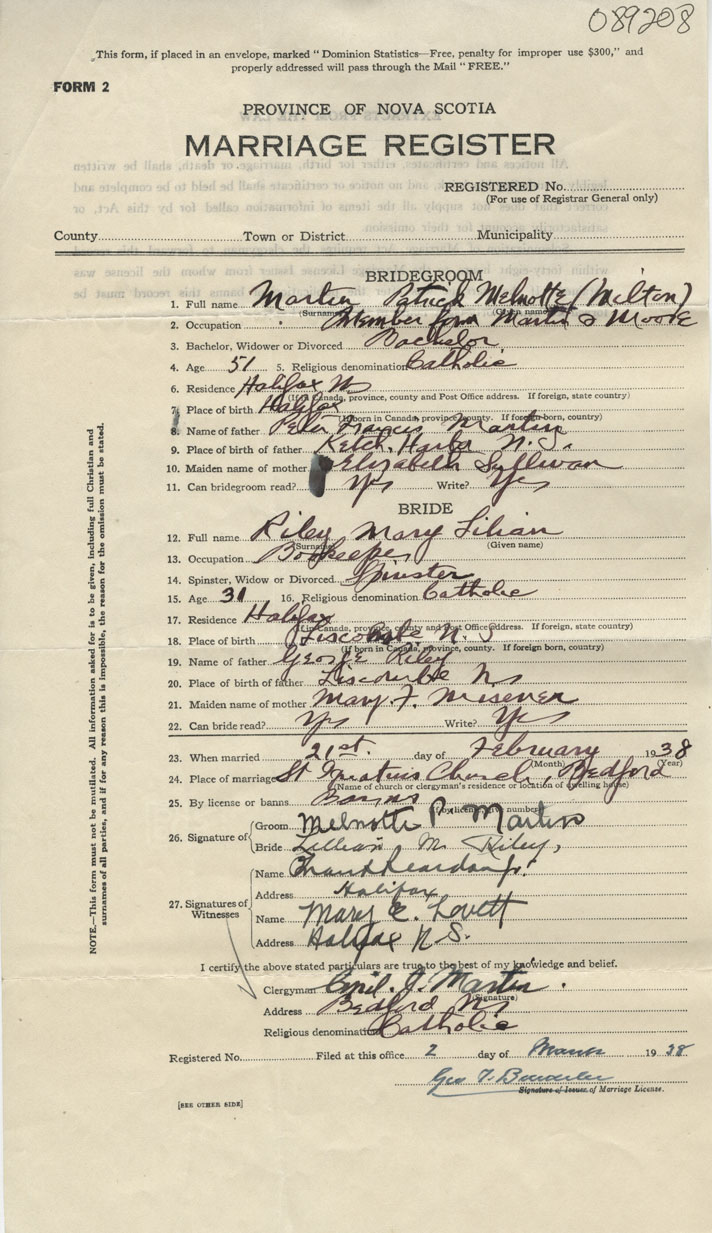 089208
This form, if placed in an envelope, marked "Dominion Statistics—Free, penalty for improper use $300," and
properly addressed will pass through the Mail "FREE."
FORM 2
PROVINCE OF NOVA SCOTIA
MARRIAGE REGISTER
REGISTERED No.
(For use of Registrar General only)
County Town or District Municipality
BRIDEGROOM
1. Full name Martin Patrick Melnotte (Milton)
(Surname) (Given name)
2. Occupation Member form Martin & Moore
3. Bachelor, Widower or Divorced Bachelor
4. Age 51 5. Religious denomination Catholic
6. Residence Halifax NS
(If in Canada, province, county and Post Office address. If foreign, state country)
7. Place of birth Halifax
(If born in Canada, province, county. If foreign-born, country)
8. Name of father Peter Francis Martin
9. Place of birth of father Ketch Harbor N.S.
10. Maiden name of mother Elizabeth Sullivan
11. Can bridegroom read? Yes Write? Yes
BRIDE
12. Full name Riley Mary Lilian
(Surname) (Given name)
13. Occupation Bookeeper
14. Spinster, Widow or Divorced Spinster
15. Age 31 16. Religious denomination Catholic
17. Residence Halifax
(If in Canada, province, county and Post Office address. If foreign, state country)
18. Place of birth Liscombe N.S
(If born in Canada, province, county. If foreign born, country)
19. Name of father George Riley
20. Place of birth of father Liscombe NS
21. Maiden name of mother Mary F. Misener
22. Can bride read? Yes Write? Yes
23. When married 21st. day of February 1938
(Month) (Year)
24. Place of marriage St Ignatius Church, Bedford
(Name of church or clergyman's residence or location of dwelling house)
25. By license or banns Banns
(If by license give number)
26. Signature of Groom Melnotte P. Martin
Bride Lillian M. Riley,
27. Signatures of Witnesses
Name Frank Reardon Jr.
Address Halifax
Name Mary E. Lovett
Address Halifax N.S.
I certify the above stated particulars are true to the best of my knowledge and belief.
Clergyman Cyril J. Martin.
(Signature)
Address Bedford NS
Religious denomination Catholic
Registered No. Filed at this office 2 day of March 1938
Geo T.
Signature of Issuer of Marriage License.
[SEE OTHER SIDE]
NOTE.—This form must not be mutilated. All information asked for is to be given, including full Christian and
surnames of all parties, and if for any reason this is impossible, the reason for the omission must be stated.